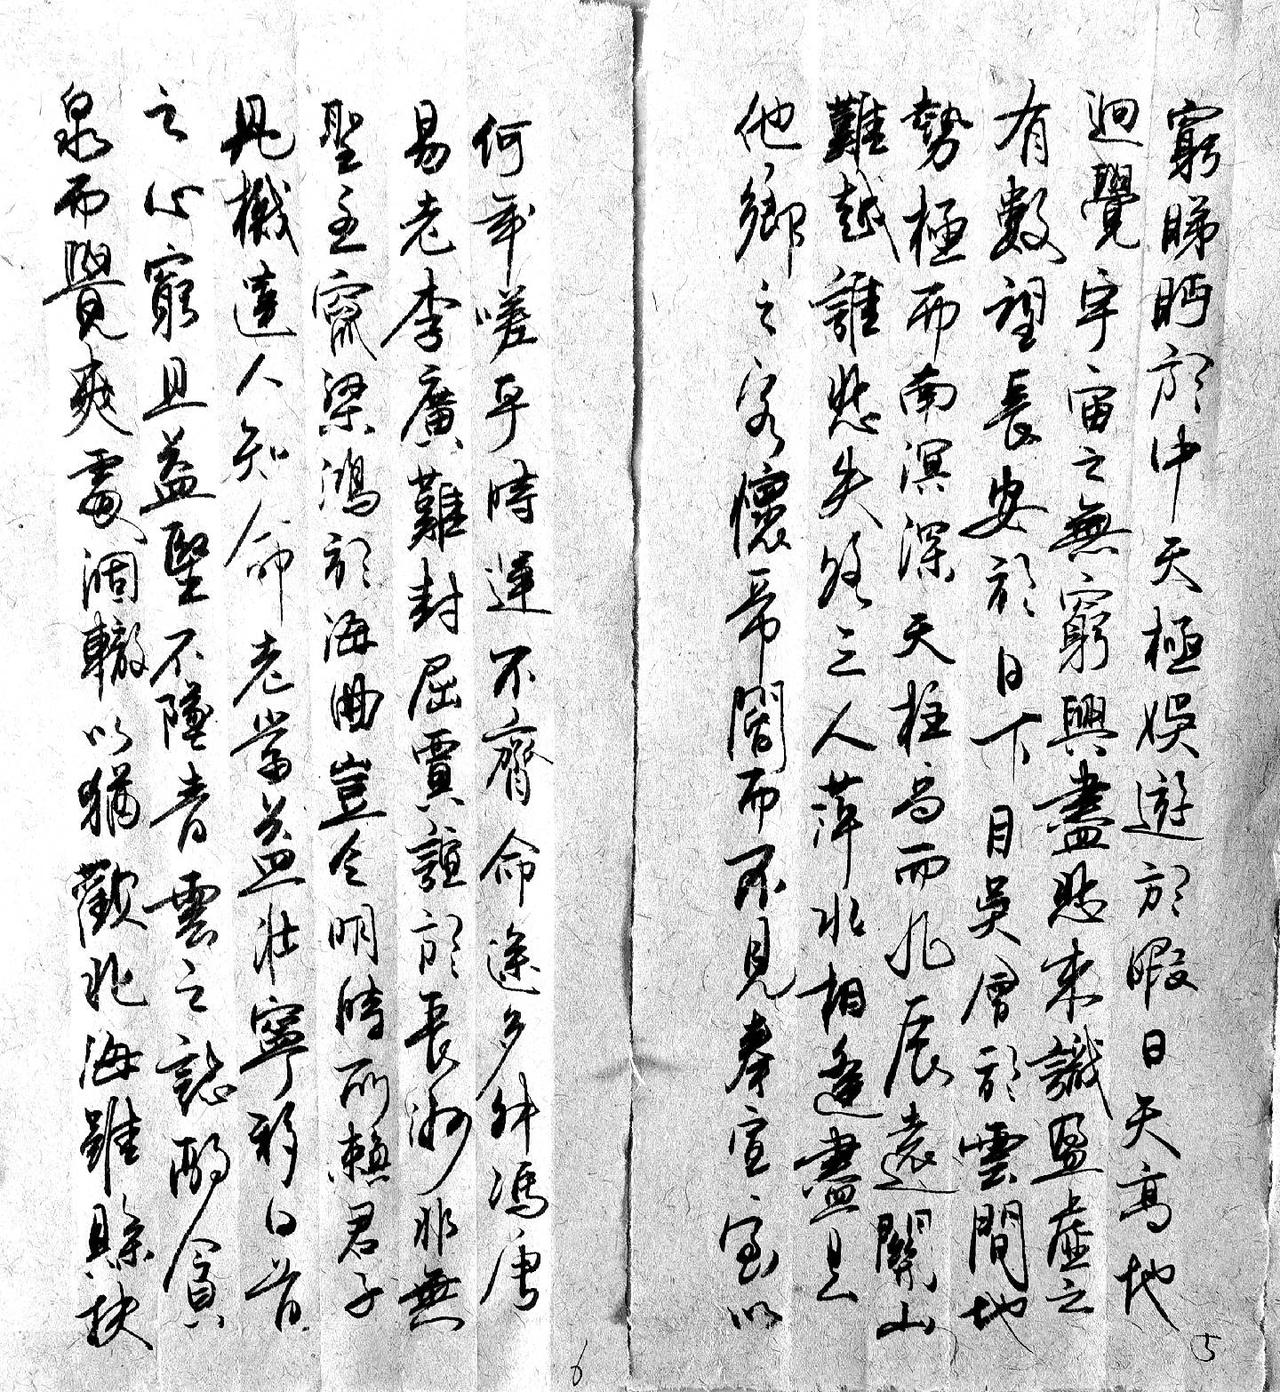 窮睇眄於中天極娛遊於暇日天高地
迥覺宇宙之無窮興盡悲來識盈虛之
有數望長安於日下目吳會於雲間地
勢極而南溟深天柱高而北辰遠關山
難越誰悲失路之人萍水相逢盡是
他鄉之客懷帝閽而不見奉宣室以
5
何年嗟乎時運不齊命途多舛馮唐
易老李廣難封屈賈誼於長沙非無
聖主竄梁鴻於海曲豈乏明時所賴君子
見機達人知命老當益壯寧移白首
之心窮且益堅不墜青雲之志酌貪
泉而覺爽處涸轍以猶歡北海雖賒扶
6